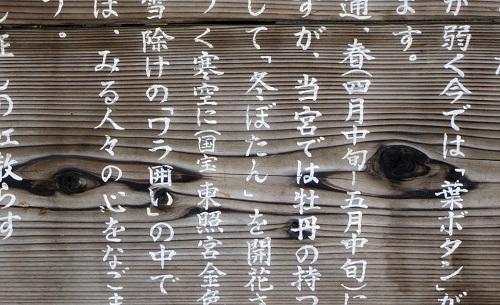 が弱く今では「葉ボタン」が
ます。
通、春(四月中旬-五月中旬)に
すが、当宮では牡丹の持つ
して「冬ぼたん」を開花さ
く寒空に(国宝 東照宮金色
雪除けの「ワラ囲い」の中で
は、みる人々の心をなごま
う。